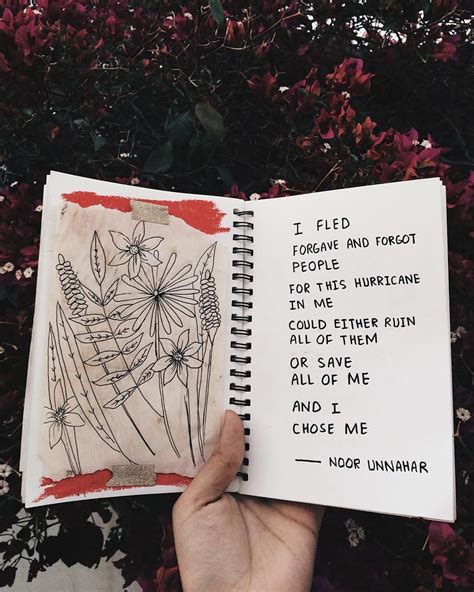 I FLED
FORGAVE AND FORGOT
PEOPLE
FOR THIS HURRICANE
IN ME
COULD EITHER RUIN
ALL OF THEM
OR SAVE
ALL OF ME
AND I
CHOSE ME
— NOOR UNNAHAR